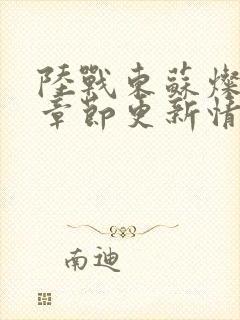 陸戰東蘇燦
章節更新情
南迪